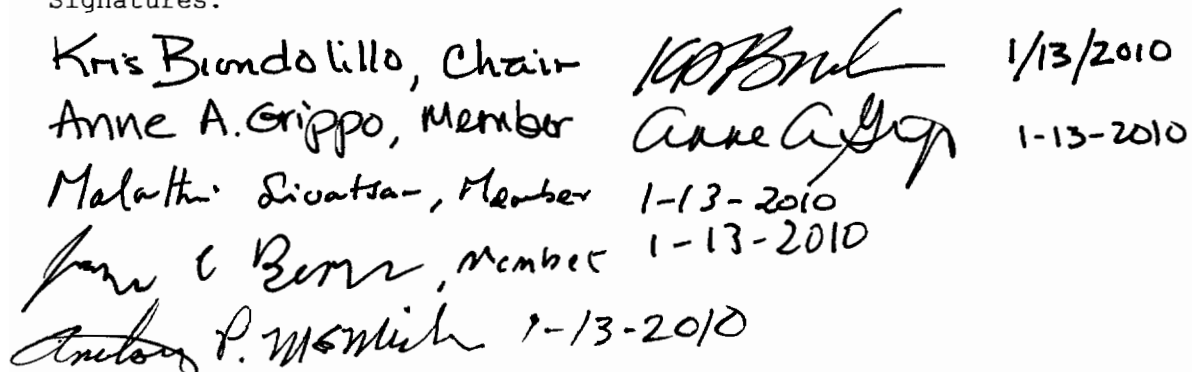 Signatures:
Kris Biondolillo, Chair 1/13/2010
Anne A. Grippo, Member Anne A Grippo 1-13-2010
Malathi Srivatsan, Member 1-13-2010
C , Member 1-13-2010
P. 1-13-2010